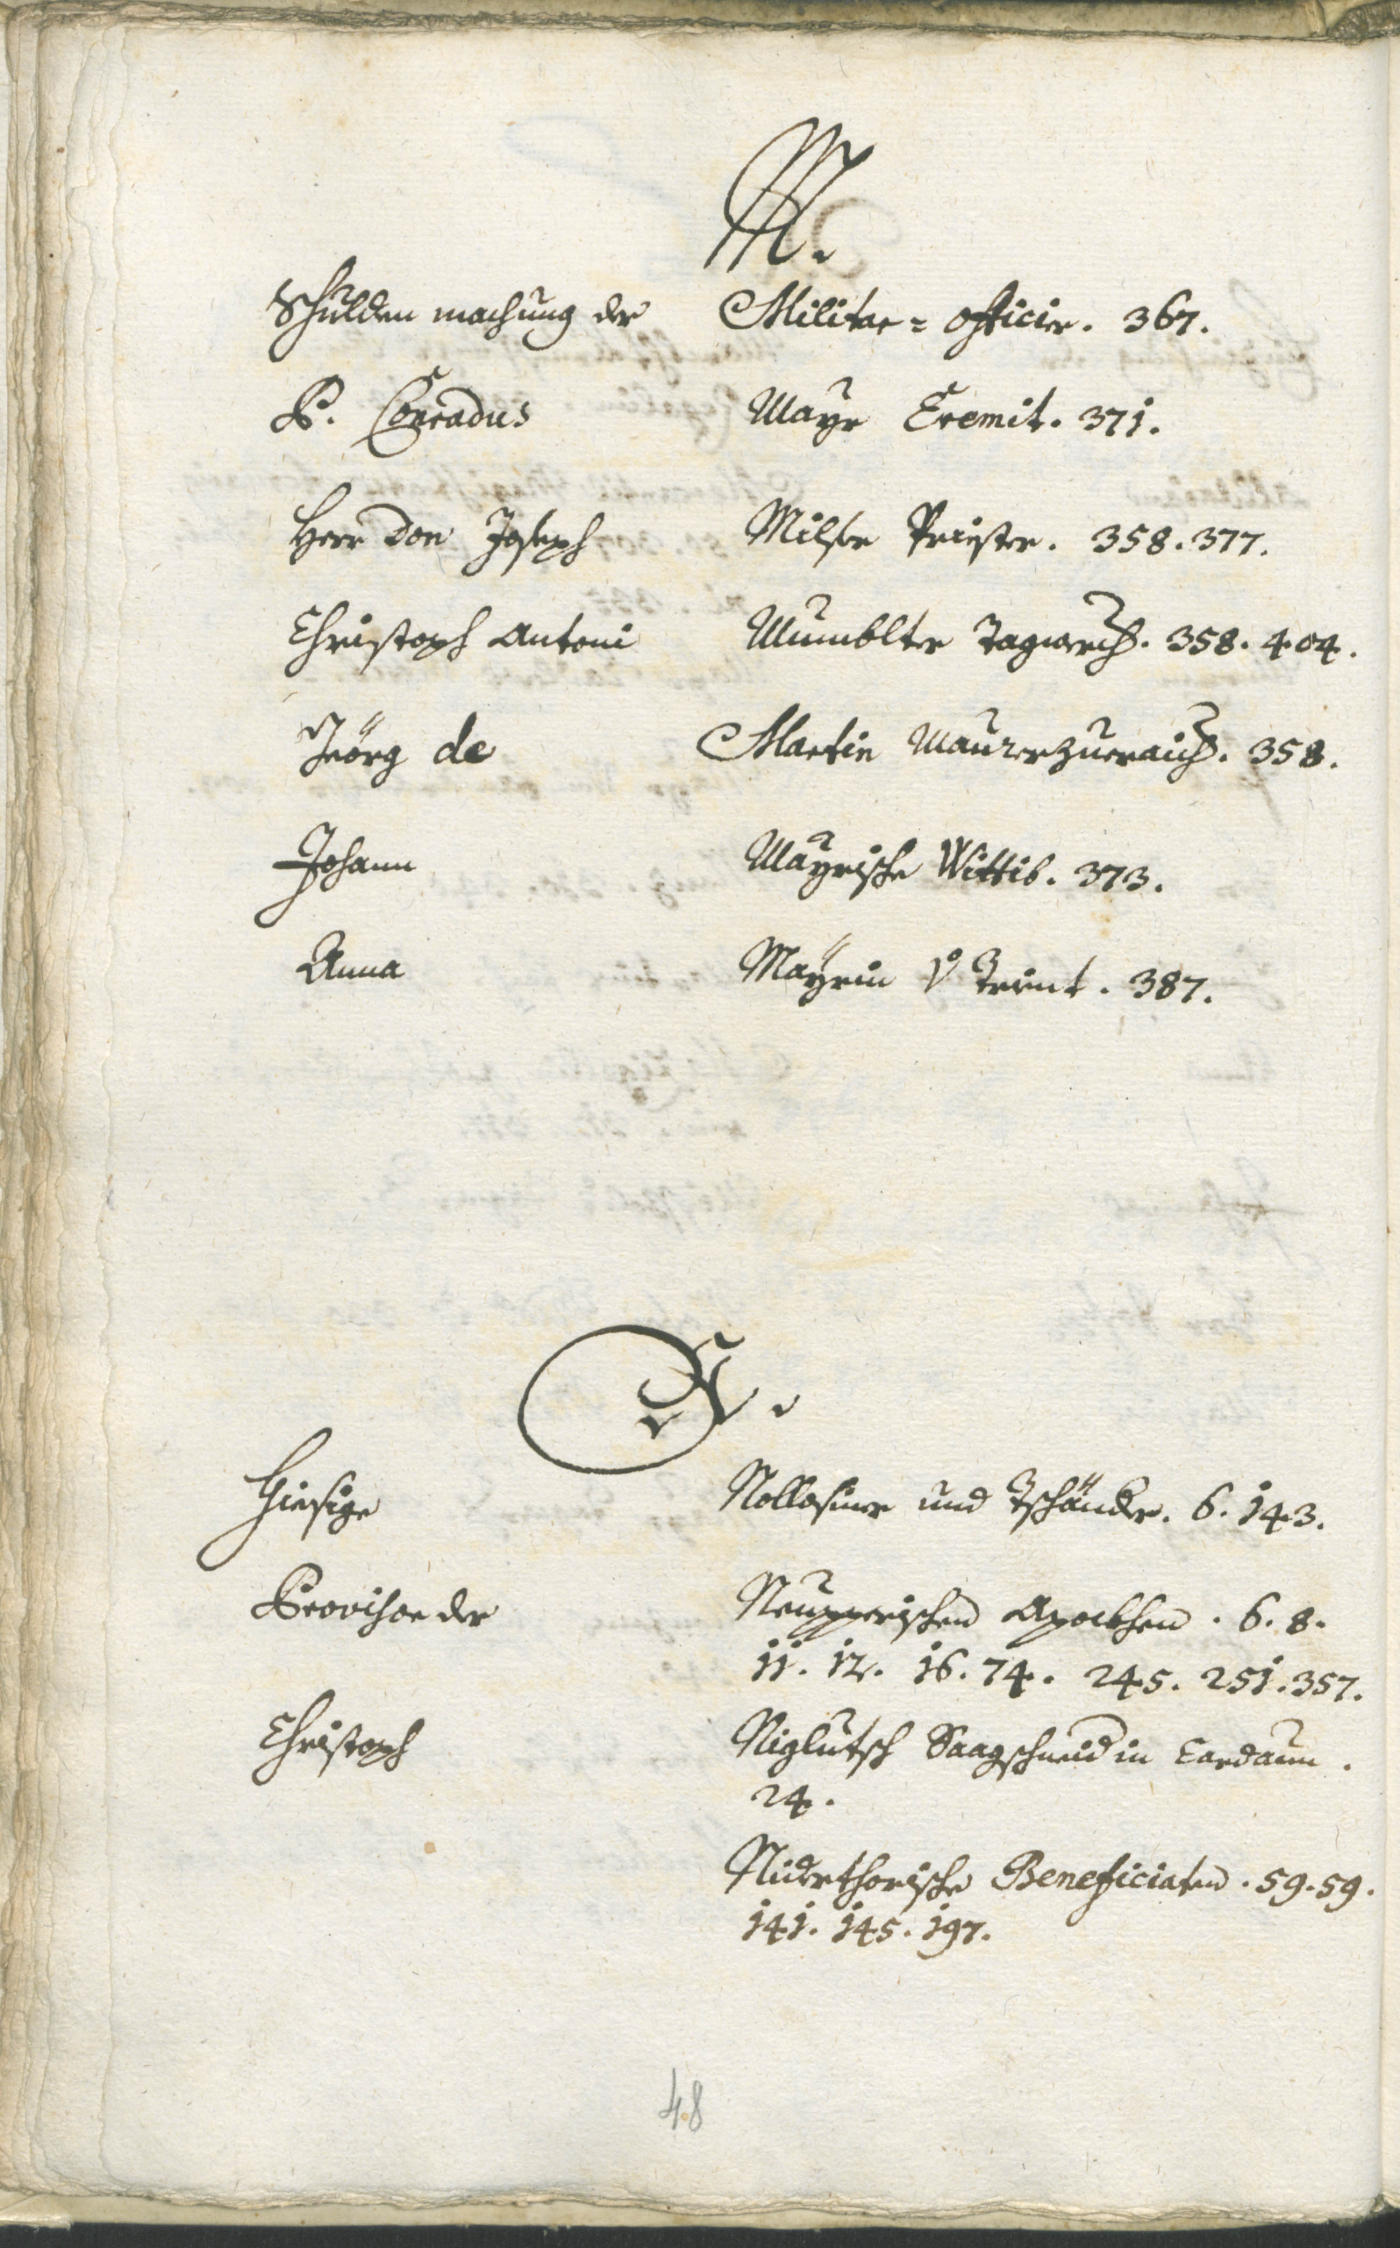 M.
Schulden machung der Militar= officier. 367.
P. Conradus Mayr Eremit. 371.
Herr Don Joseph Milser Priester. 358. 377.
Christoph Antoni Mumblter Tagwerch. 358. 404.
Jeörg de Martin Maurer 358.
Johann Mayrische Wittib. 373.
Anna Mäyrin v Trient. 387.
N.
Hiesige Nollosiner und Tschänder. 6. 143.
Provisor der Neupperischen Apoethen. 6. 8.
11. 12. 16. 74. 245. 251. 357.
Christoph Niglutsch Saagschneid in Cardaun.
24.
Niderthorische Beneficiaten. 59. 59.
141. 145. 197.
48